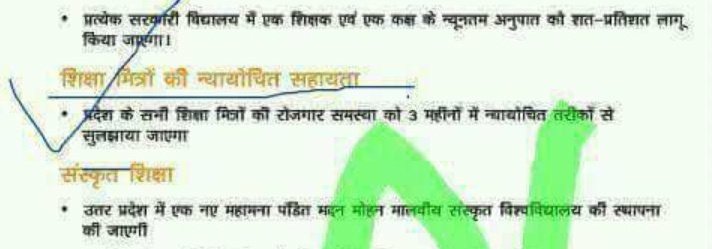 • प्रत्येक सरकारी विद्यालय में एक शिक्षक एवं एक कक्ष के न्यूनतम अनुपात को शत-प्रतिशत लागू
किया जाएगा।
शिक्षा मित्रों की न्यायोचित सहायता
• प्रदेश के सभी शिक्षा मित्रों की रोजगार समस्या को 3 महीनों में न्यायोचित तरीकों से
सुलझाया जाएगा
संस्कृत शिक्षा
• उतर प्रदेश में एक नए महामना पंडित मदन मोहन मालवीय संस्कृत विश्वविद्यालय की स्थापना
की जाएगी